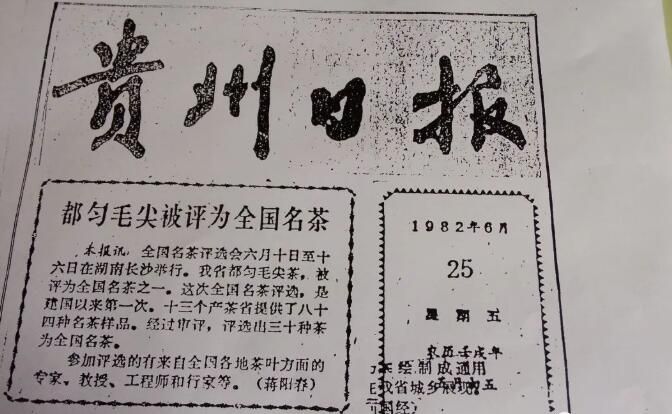 贵州日报
都匀毛尖被评为全国名茶
本报讯：全国名茶评选会六月十日至十
六日在湖南长沙举行。我省都匀毛尖茶，被
评为全国名茶之一。这次全国名茶评选，是
建国以来第一次。十三个产茶省提供了八十
四种名茶样品。经过审评，评选出三十种茶
为全国名茶。
参加评选的有来自全国各地茶叶方面的
专家、教授、工程师和行家等。（蒋阳春）
1982年6月
25
星期五
农历壬戌年
五月初五
绘制成通用
我省城乡展现。
国经）